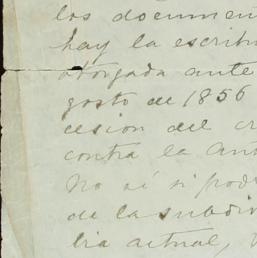 los documen
hay la escritu
otorgada ante
gosto de 1856
cesion del cr
contra la An
No sé si pod
de la subdiv
lia actual,